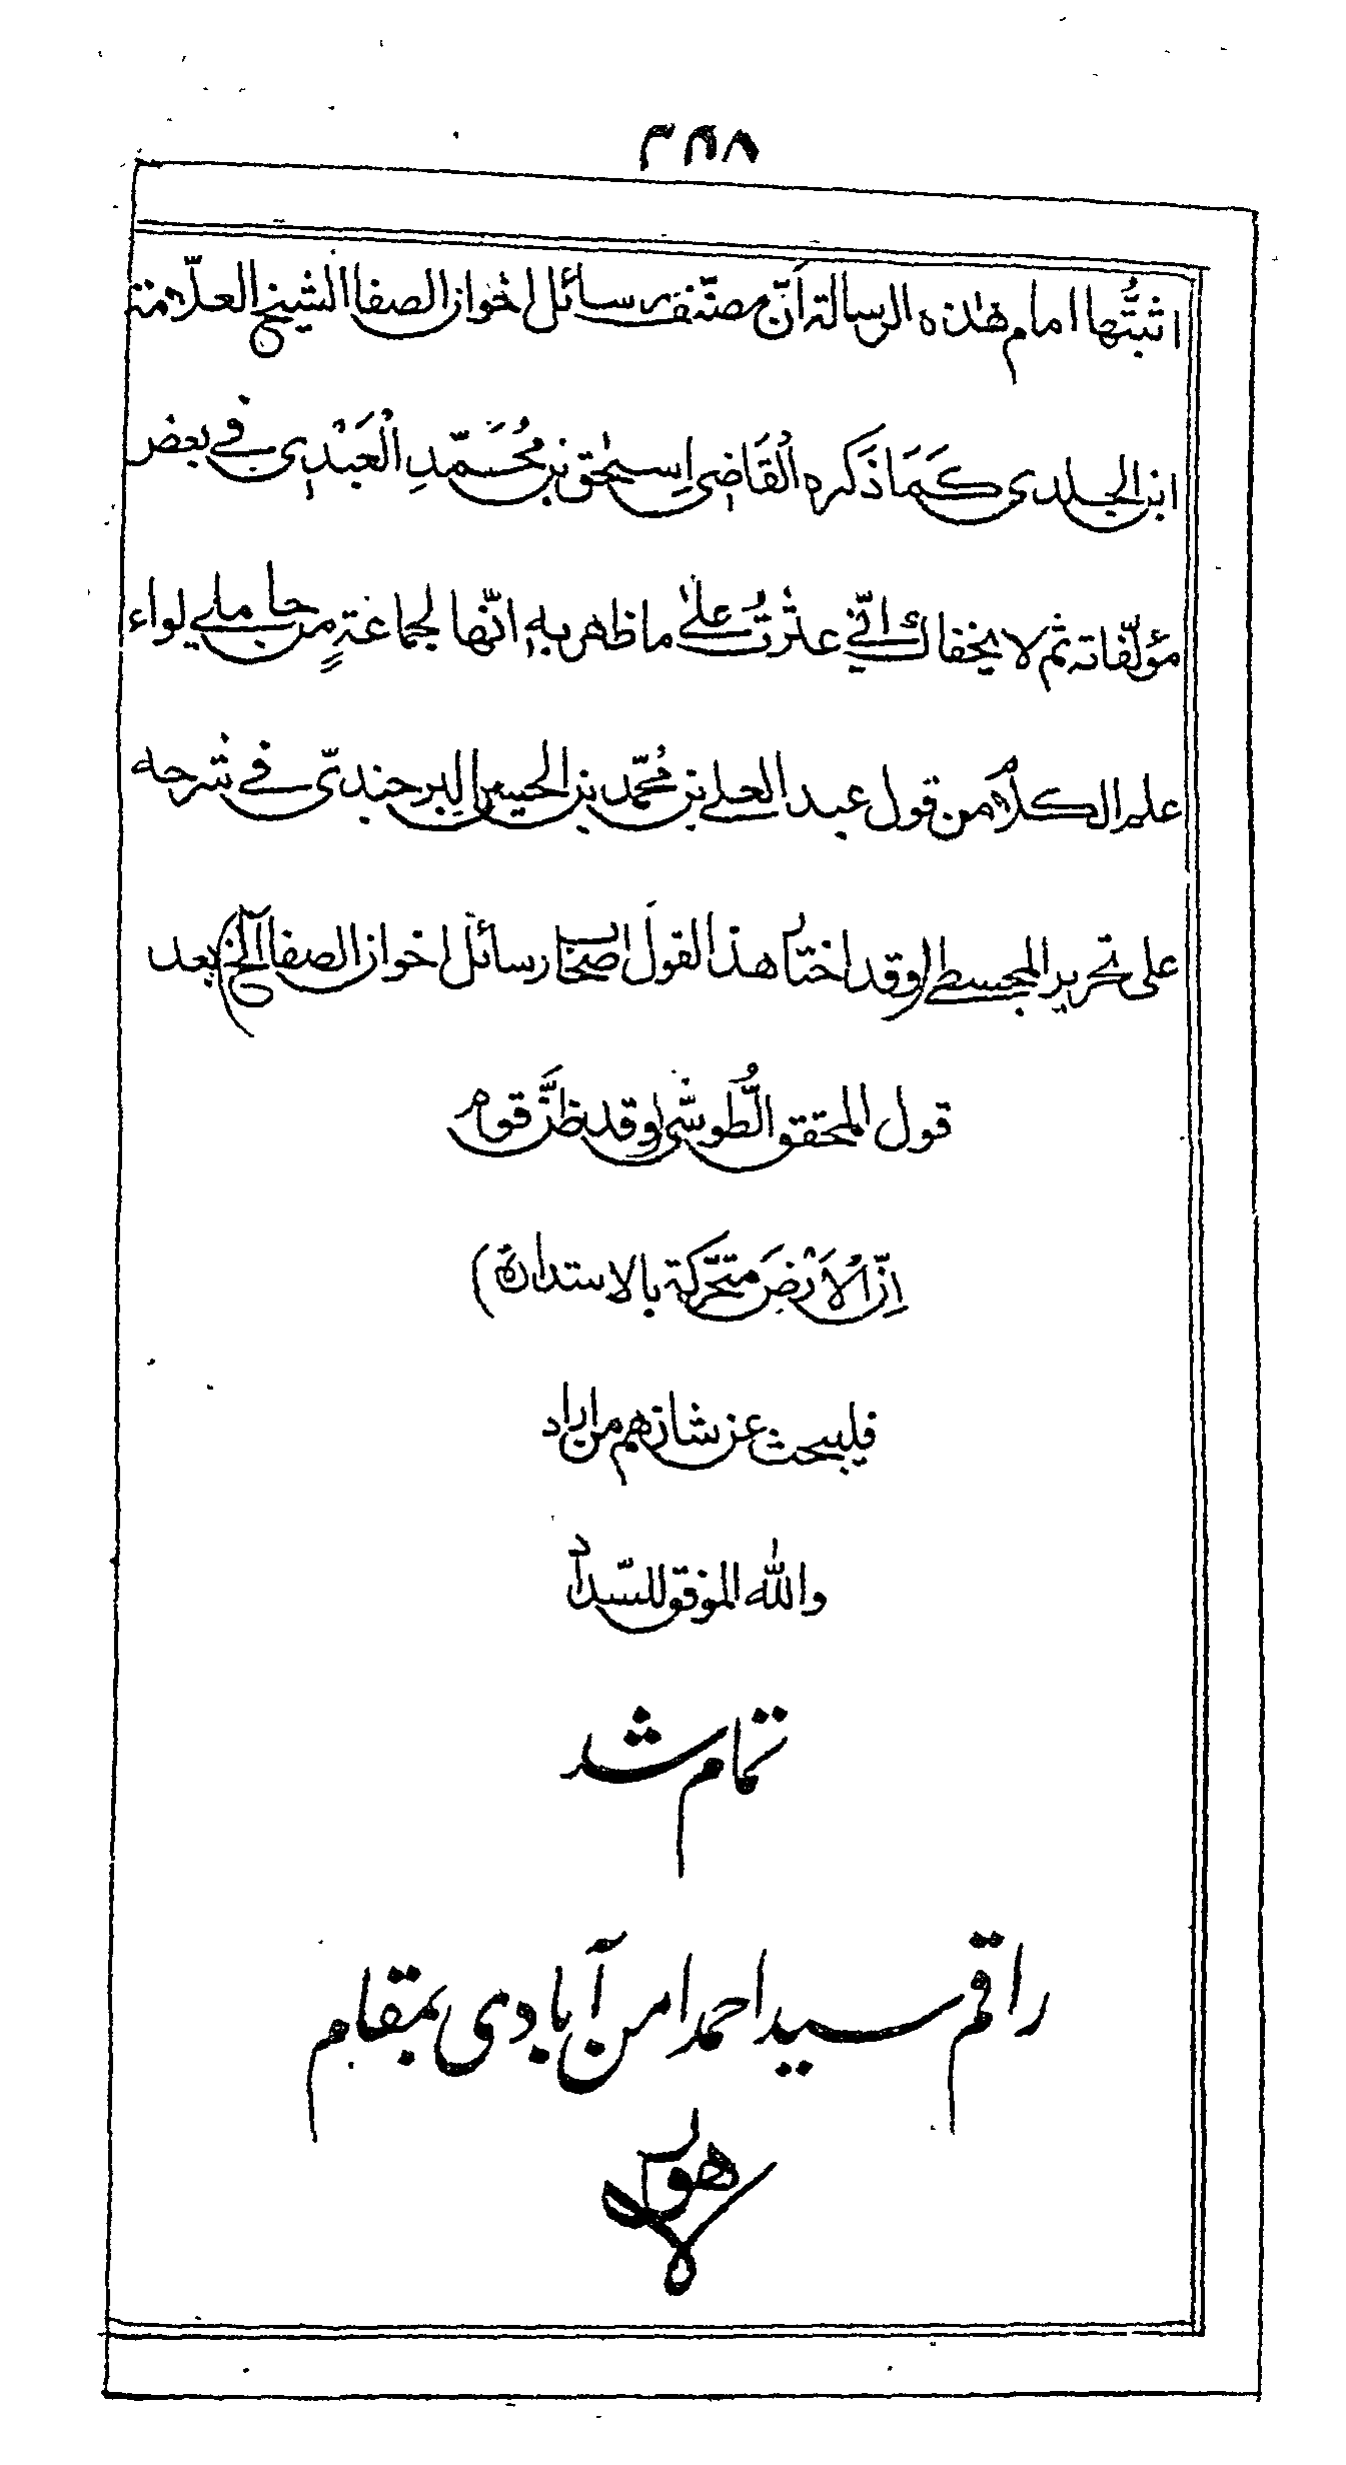 ٣٩٨
اثبتُّها امام هٰذه الرسالة اَنّ مصنّف رسائل اخوان الصفا الشیخ العلّامة
ابن الجلدی كَمَا ذَكره الْقَاضِی اِسحٰق بن مُحَمّدِ الْعَبْدِی فے بعض
مؤلّفاته ثم لا یخفاك انّی عثرتُ علیٰ ما ظهر بهٖ انّها لجماعةٍ من حاملے لواء
علم الكلام من قول عبد العلے بن مُحمّد بن الحسین البرجندیّ فے شرحه
علی تحریر المجسطے (وقد اختار هذا القول اصحاب رسائل اخوان الصفا الخ) بعد
قول المحقق الطُّوسّی (وقد ظنَّ قوم
اِنّ الْاَرْضَ متحّركة بالاستدارة)
فلیبحث عن شانهم من اراد
والله الموفق للسّداد
تمام شد
راقم سید احمد امن آبادی بمقام
لاهور